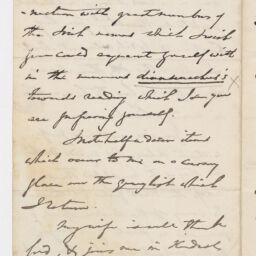 -nection with great numbers of
the Irish names which I wish
you could acquaint yourself with
in the numerous
towards reading which I see you
are preparing yourself.
I note half a dozen items
which occur to me on a cursory
glance over the grey list which
I return.
My wife is well thank
God, & joins me in kindest